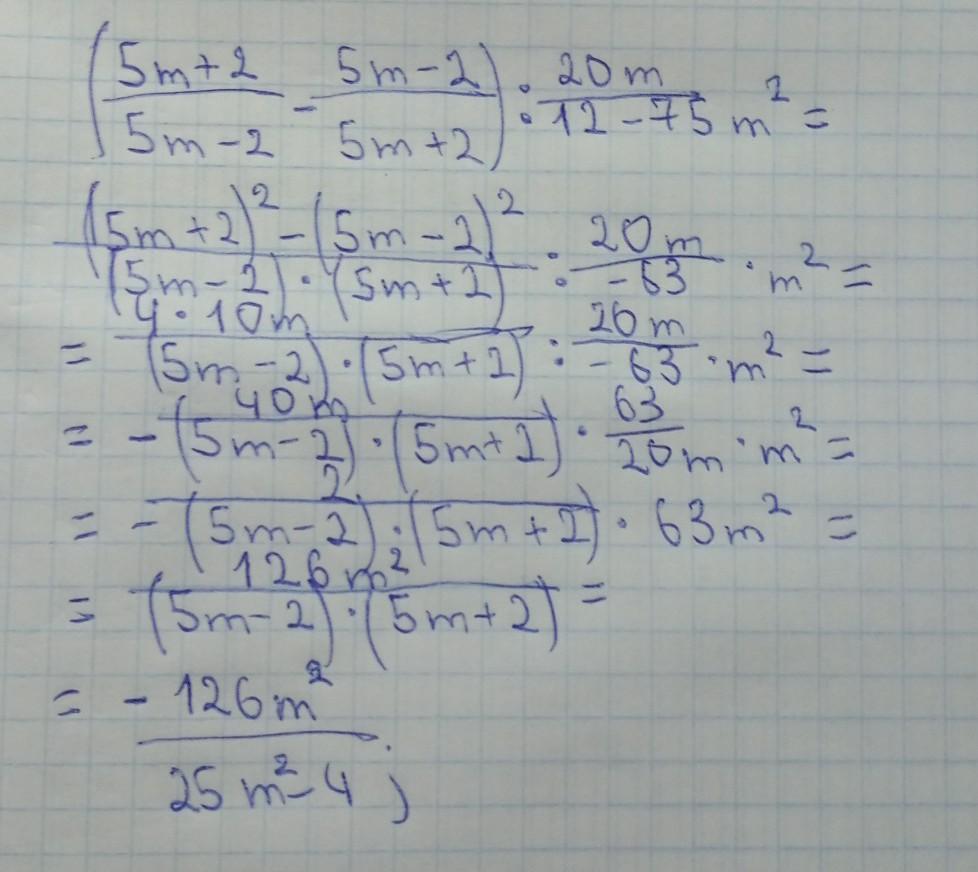 (5m+2/5m-2 - 5m-2/5m+2) : 20m/12-75m² =
(5m+2)²-(5m-2)²/(5m-2)·(5m+2) : 20m/-63 · m² =
= 4·10m/(5m-2)·(5m+2) : 20m/-63 · m² =
= - 40m/(5m-2)·(5m+2) · 63/20m · m² =
= - 2/(5m-2)·(5m+2) · 63m² =
= 126m²/(5m-2)·(5m+2) =
= - 126m²/25m²-4 ;